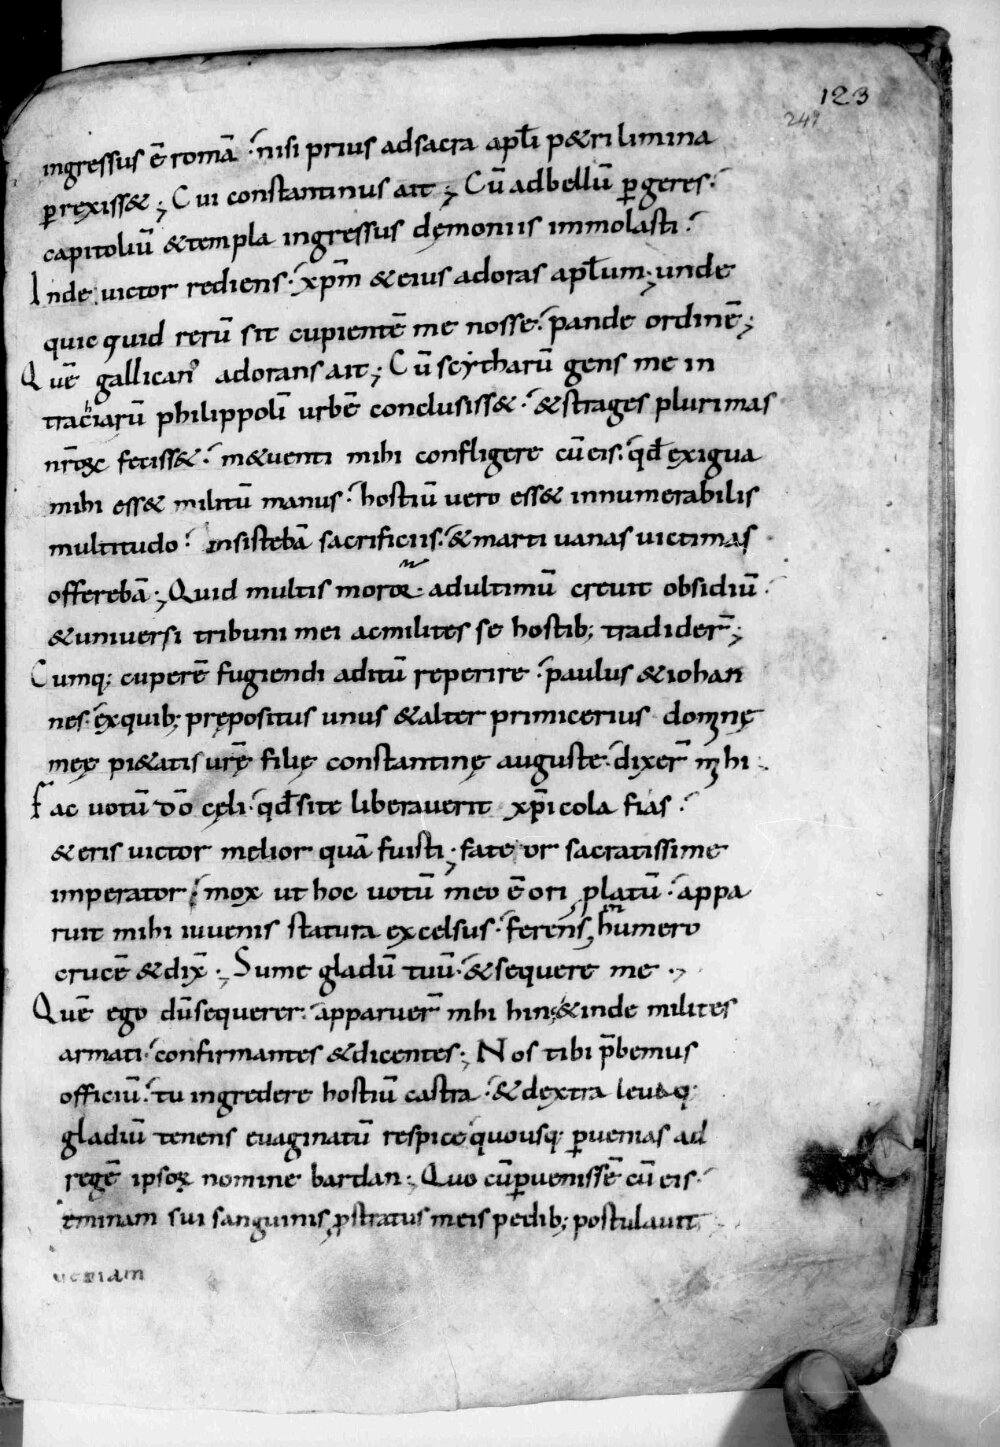 123
249
ingressus ē romā · nisi prius ad sacra apłi p&ri limina
p̄rexiss& ; Cui constantinus ait ; Cū ad bellū p̄geres ·
capitoliū & templa ingressus dęmoniis immolasti ·
Inde victor rediens · xp̄m & eius adoras apłum ; unde
quicquid rerū sit cupientē me nosse · pande ordinē ;
Quē gallican᾿ adorans ait ; Cū scẏtharū gens me in
trachiarū philippolī urbē conclusiss& · & strages plurimas
nr̄oꝝ feciss& · m&uenti mihi confligere cū eis · qđ exigua
mihi ess& militū manus · hostiū vero ess& innumerabilis
multitudo · insistebā sacrificiis · & marti vanas victimas
offerebā ; Quid multis moror · ad ultimū crevit obsidiū ·
& universi tribuni mei ac milites se hostib; tradider̄ ;
Cumq; cuperē fugiendi aditū reperire · paulus & iohan
nes · ex quib; prępositus unus & alter primicerius domnę
meę pi&atis vrę̄ filię constantinę auguste · dixer̄ mhi ·
Fac votū dō cęli · qđ si te liberaverit xp̄icola fias ·
& eris victor melior quā fuisti ; fateor sacratissime
imperator · mox ut hoc votū meo ē ori platū · appa
ruit mihi iuvenis statura excelsus · ferens in humero
crucē & dix̄ ; Sume gladiū tuū · & sequere me ·
Quē ego dū sequerer · apparuer̄ mihi hinc & inde milites
armati · confirmantes & dicentes ; Nos tibi p̄bemus
officiū · tu ingredere hostiū castra · & dextra levaq;
gladiū tenens evaginatū respice quousq; p̄venias ad
regē ipsoꝝ nomine bardan ; Quo cū p̄venissē cū eis ·
eminam sui sanguinis p̄stratus meis pedib; postulavit
veniam